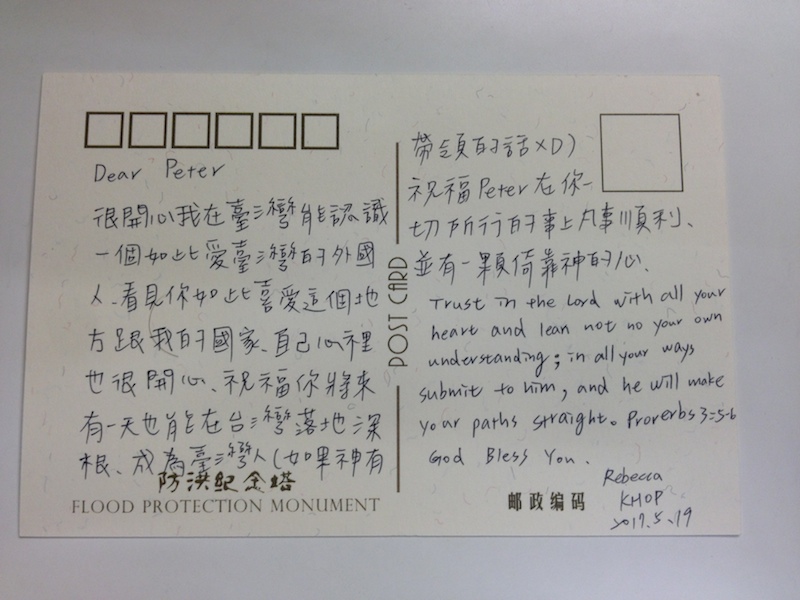 Dear Peter
很開心我在臺灣能認識
一個如此愛臺灣的外國
人、看見你如此喜愛這個地
方跟我的國家、自己心裡
也很開心、祝福你將來
有一天也能在台灣落地深
根、成為臺灣人(如果神有
防洪纪念塔
FLOOD PROTECTION MONUMENT
POST CARD
帶領的話XD)
祝福Peter在你一
切所行的事上凡事順利、
並有一顆倚靠神的心、
Trust in the Lord with all your
heart and lean not no your own
understanding; in all your ways
submit to him, and he will make
your paths straight。Proverbs 3:5-6
God Bless You.
邮政编码
Rebecca
KHOP
2017.5.19